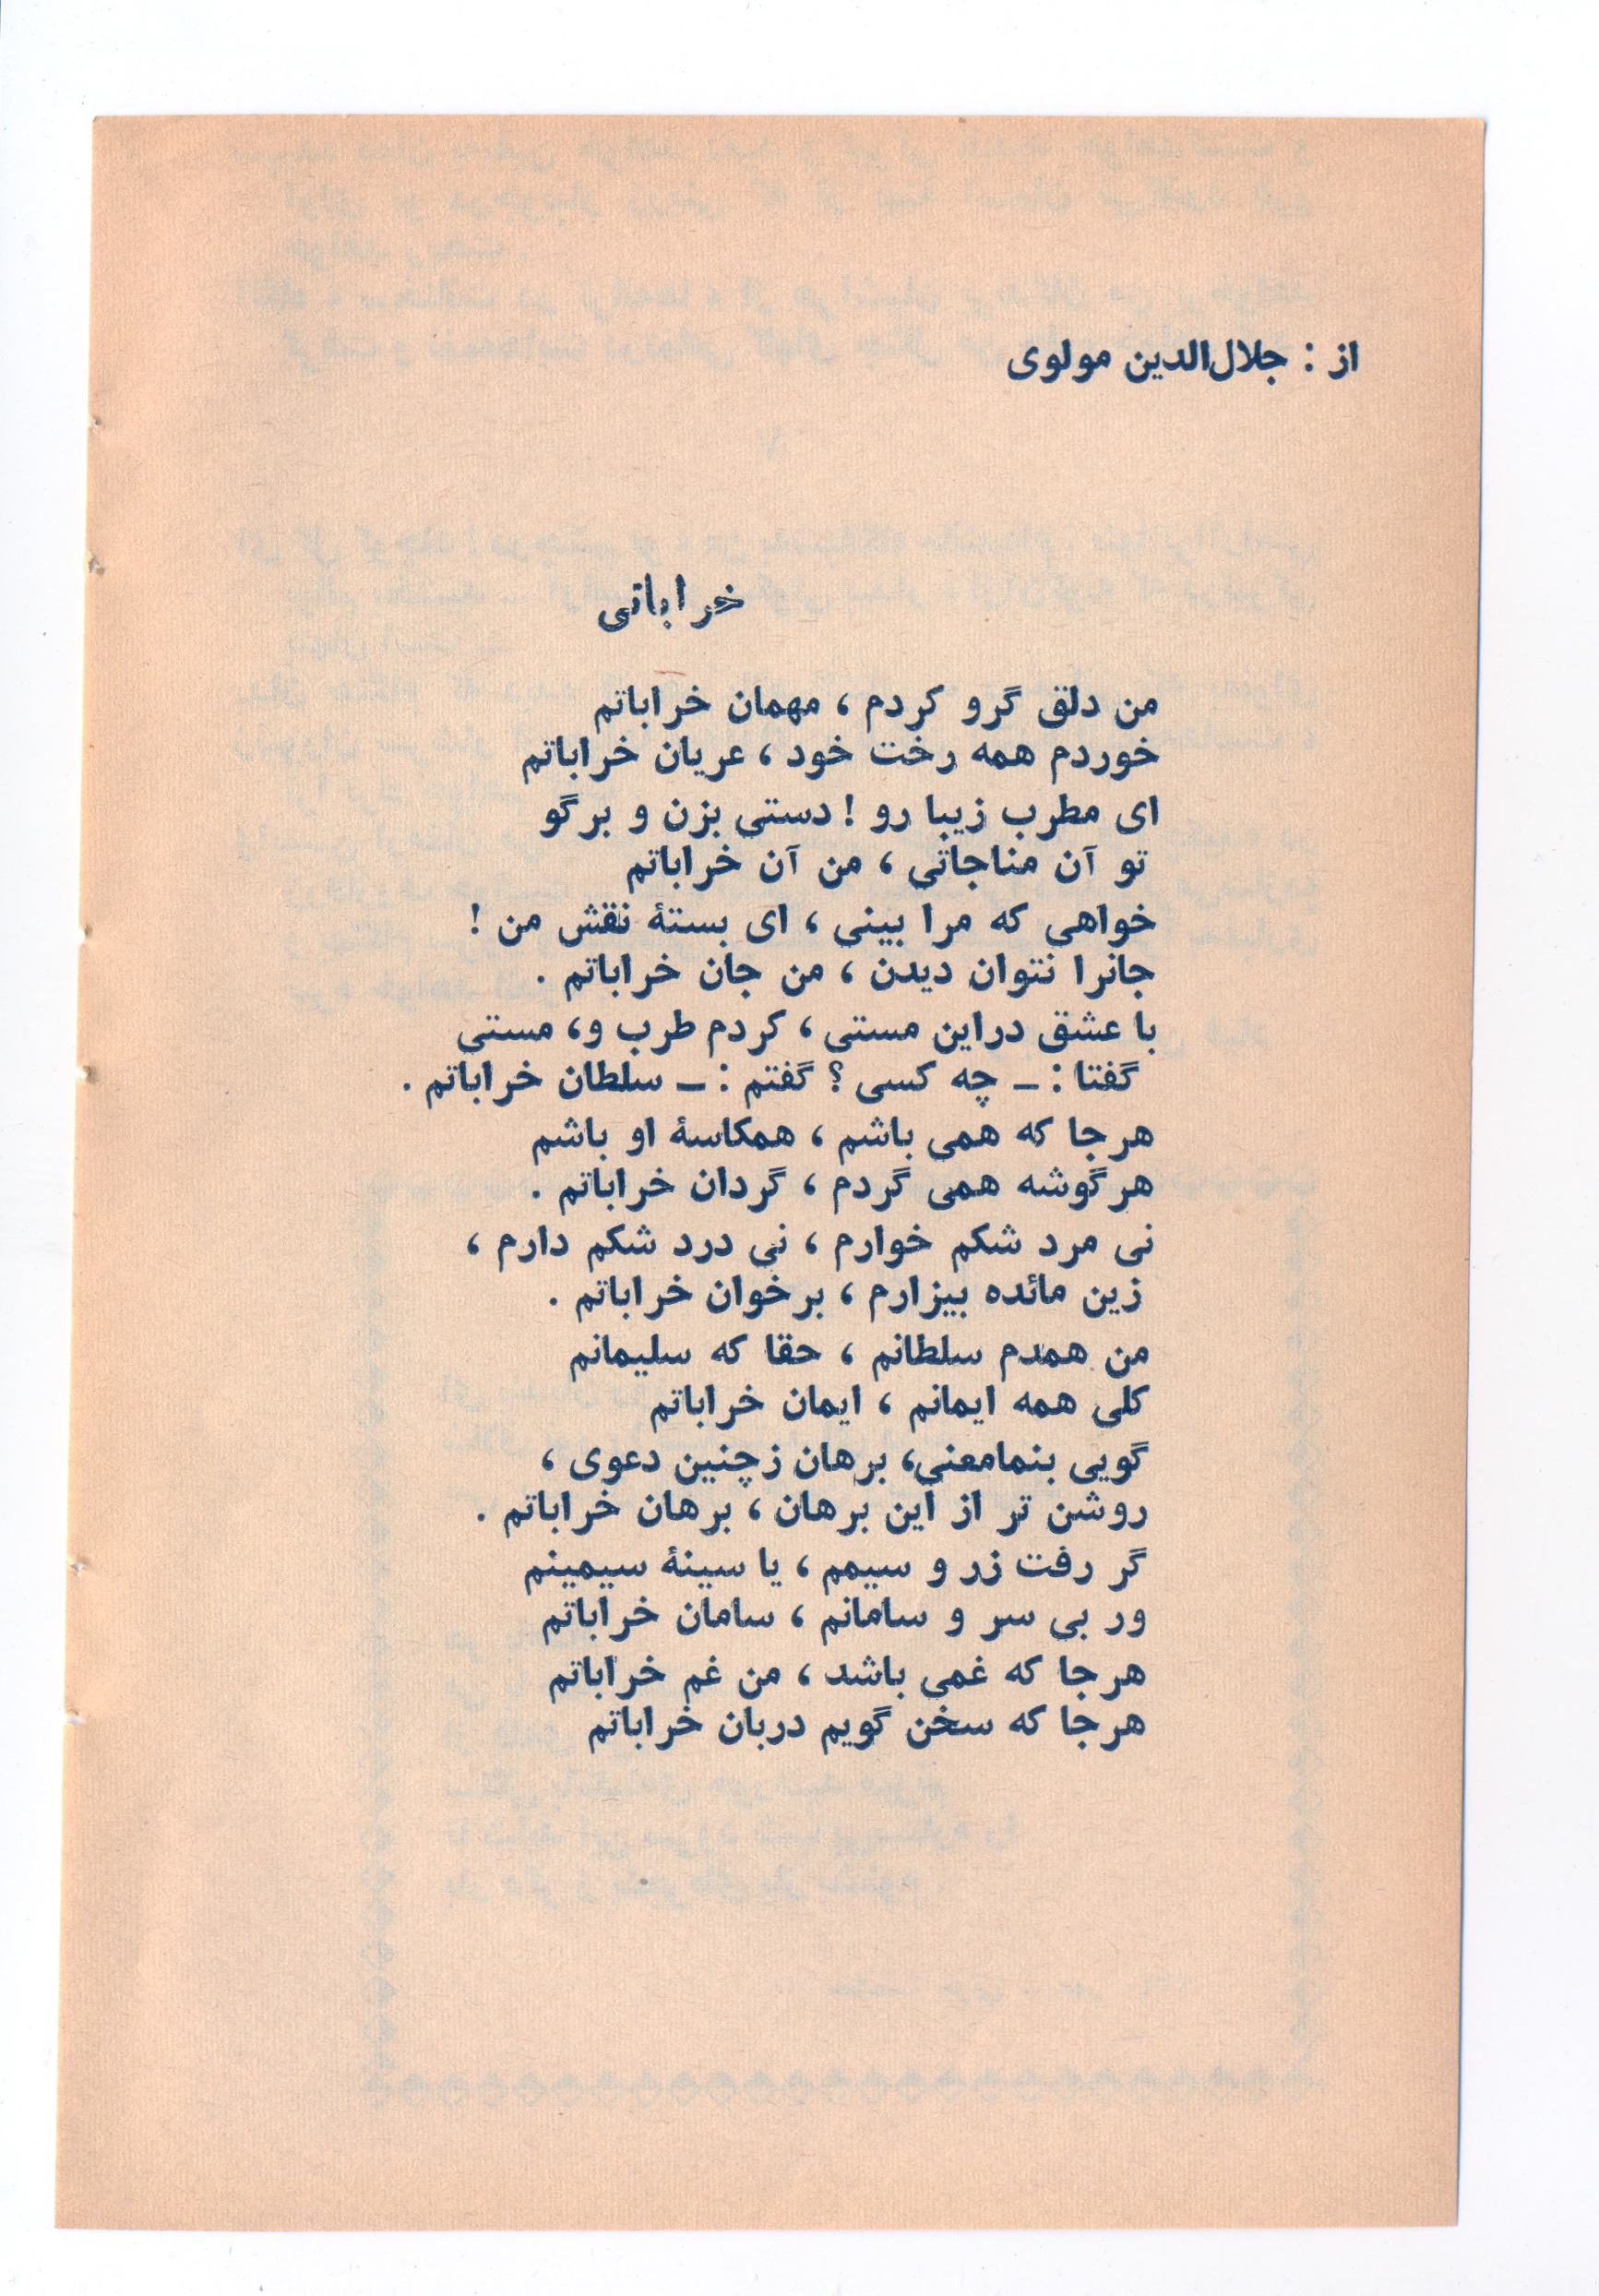 از : جلال‌الدین مولوی
خراباتی
من دلق گرو کردم ، مهمان خراباتم
خوردم همه رخت خود ، عریان خراباتم
ای مطرب زیبا رو ! دستی بزن و برگو
تو آن مناجاتی ، من آن خراباتم
خواهی که مرا بینی ، ای بستهٔ نقش من !
جانرا نتوان دیدن ، من جان خراباتم .
با عشق دراین مستی ، کردم طرب و، مستی
گفتا : ـ چه کسی ؟ گفتم : ـ سلطان خراباتم .
هرجا که همی باشم ، همکاسهٔ او باشم
هرگوشه همی گردم ، گردان خراباتم .
نی مرد شکم خوارم ، نی درد شکم دارم ،
زین مائده بیزارم ، برخوان خراباتم .
من همدم سلطانم ، حقا که سلیمانم
کلی همه ایمانم ، ایمان خراباتم
گویی بنمامعنی، برهان زچنین دعوی ،
روشن تر از این برهان ، برهان خراباتم .
گر رفت زر و سیمم ، یا سینهٔ سیمینم
ور بی سر و سامانم ، سامان خراباتم
هرجا که غمی باشد ، من غم خراباتم
هرجا که سخن گویم دربان خراباتم